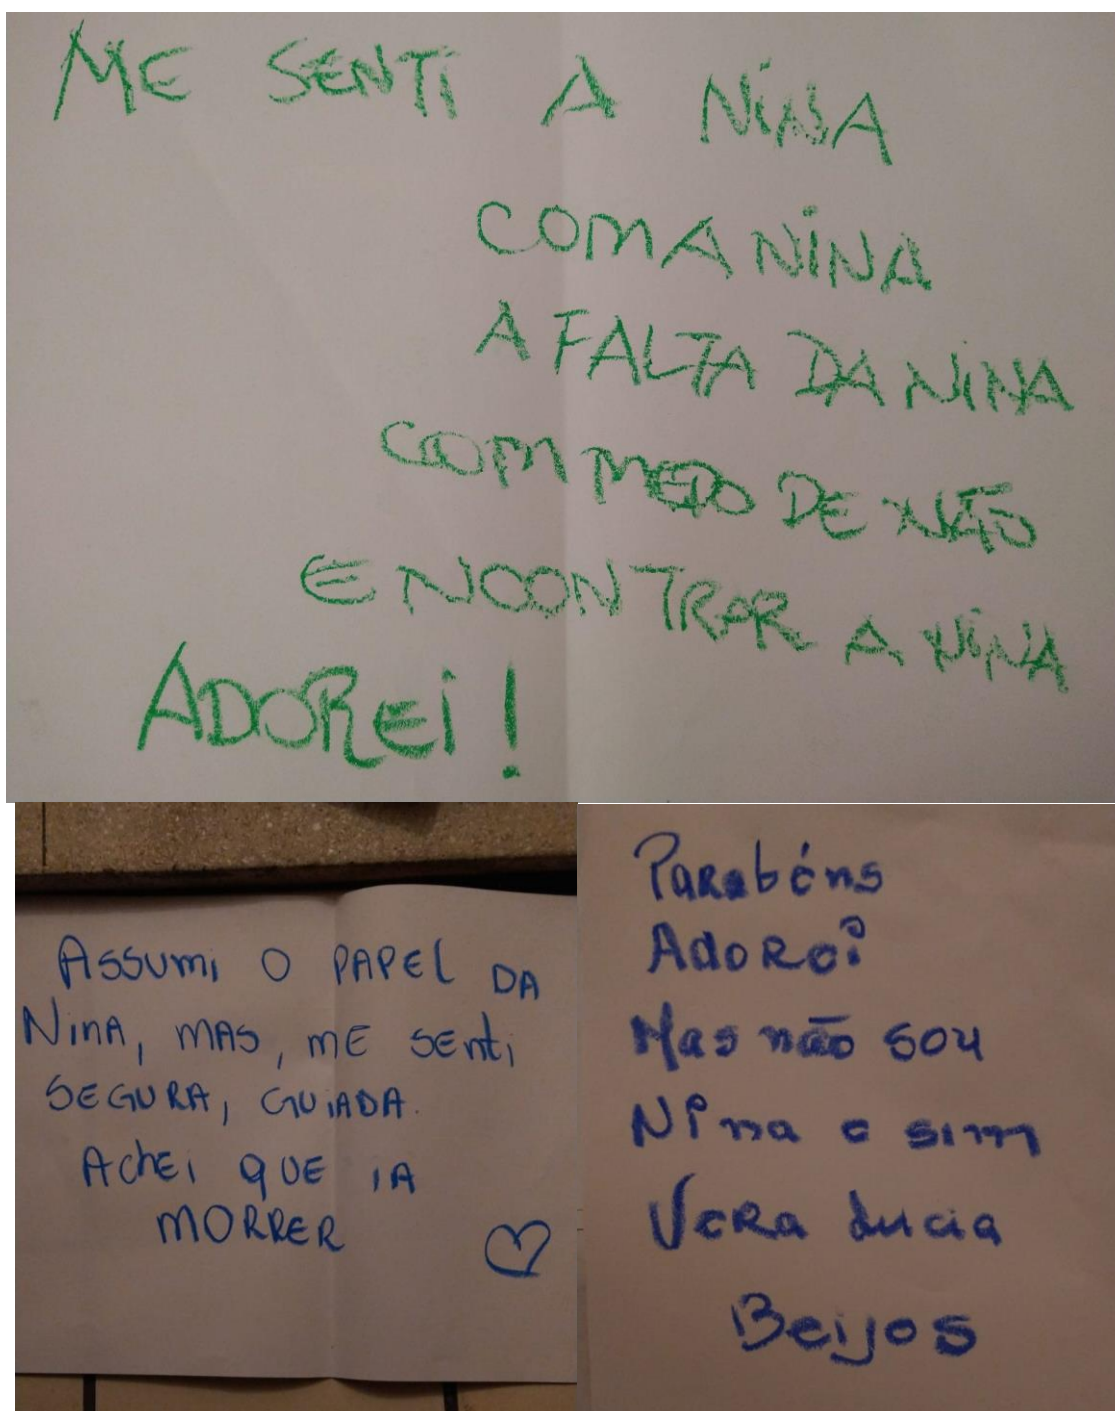 ME SENTI A NINA
COM A NINA
A FALTA DA NINA
COM MEDO DE NÃO
ENCONTRAR A NINA
ADOREI!
ASSUMI O PAPEL DA
NINA, MAS, ME SENTI
SEGURA, GUIADA.
ACHEI QUE IA
MORRER
Parabéns
Adorei
Mas não sou
Nina e sim
Vera Lucia
Beijos